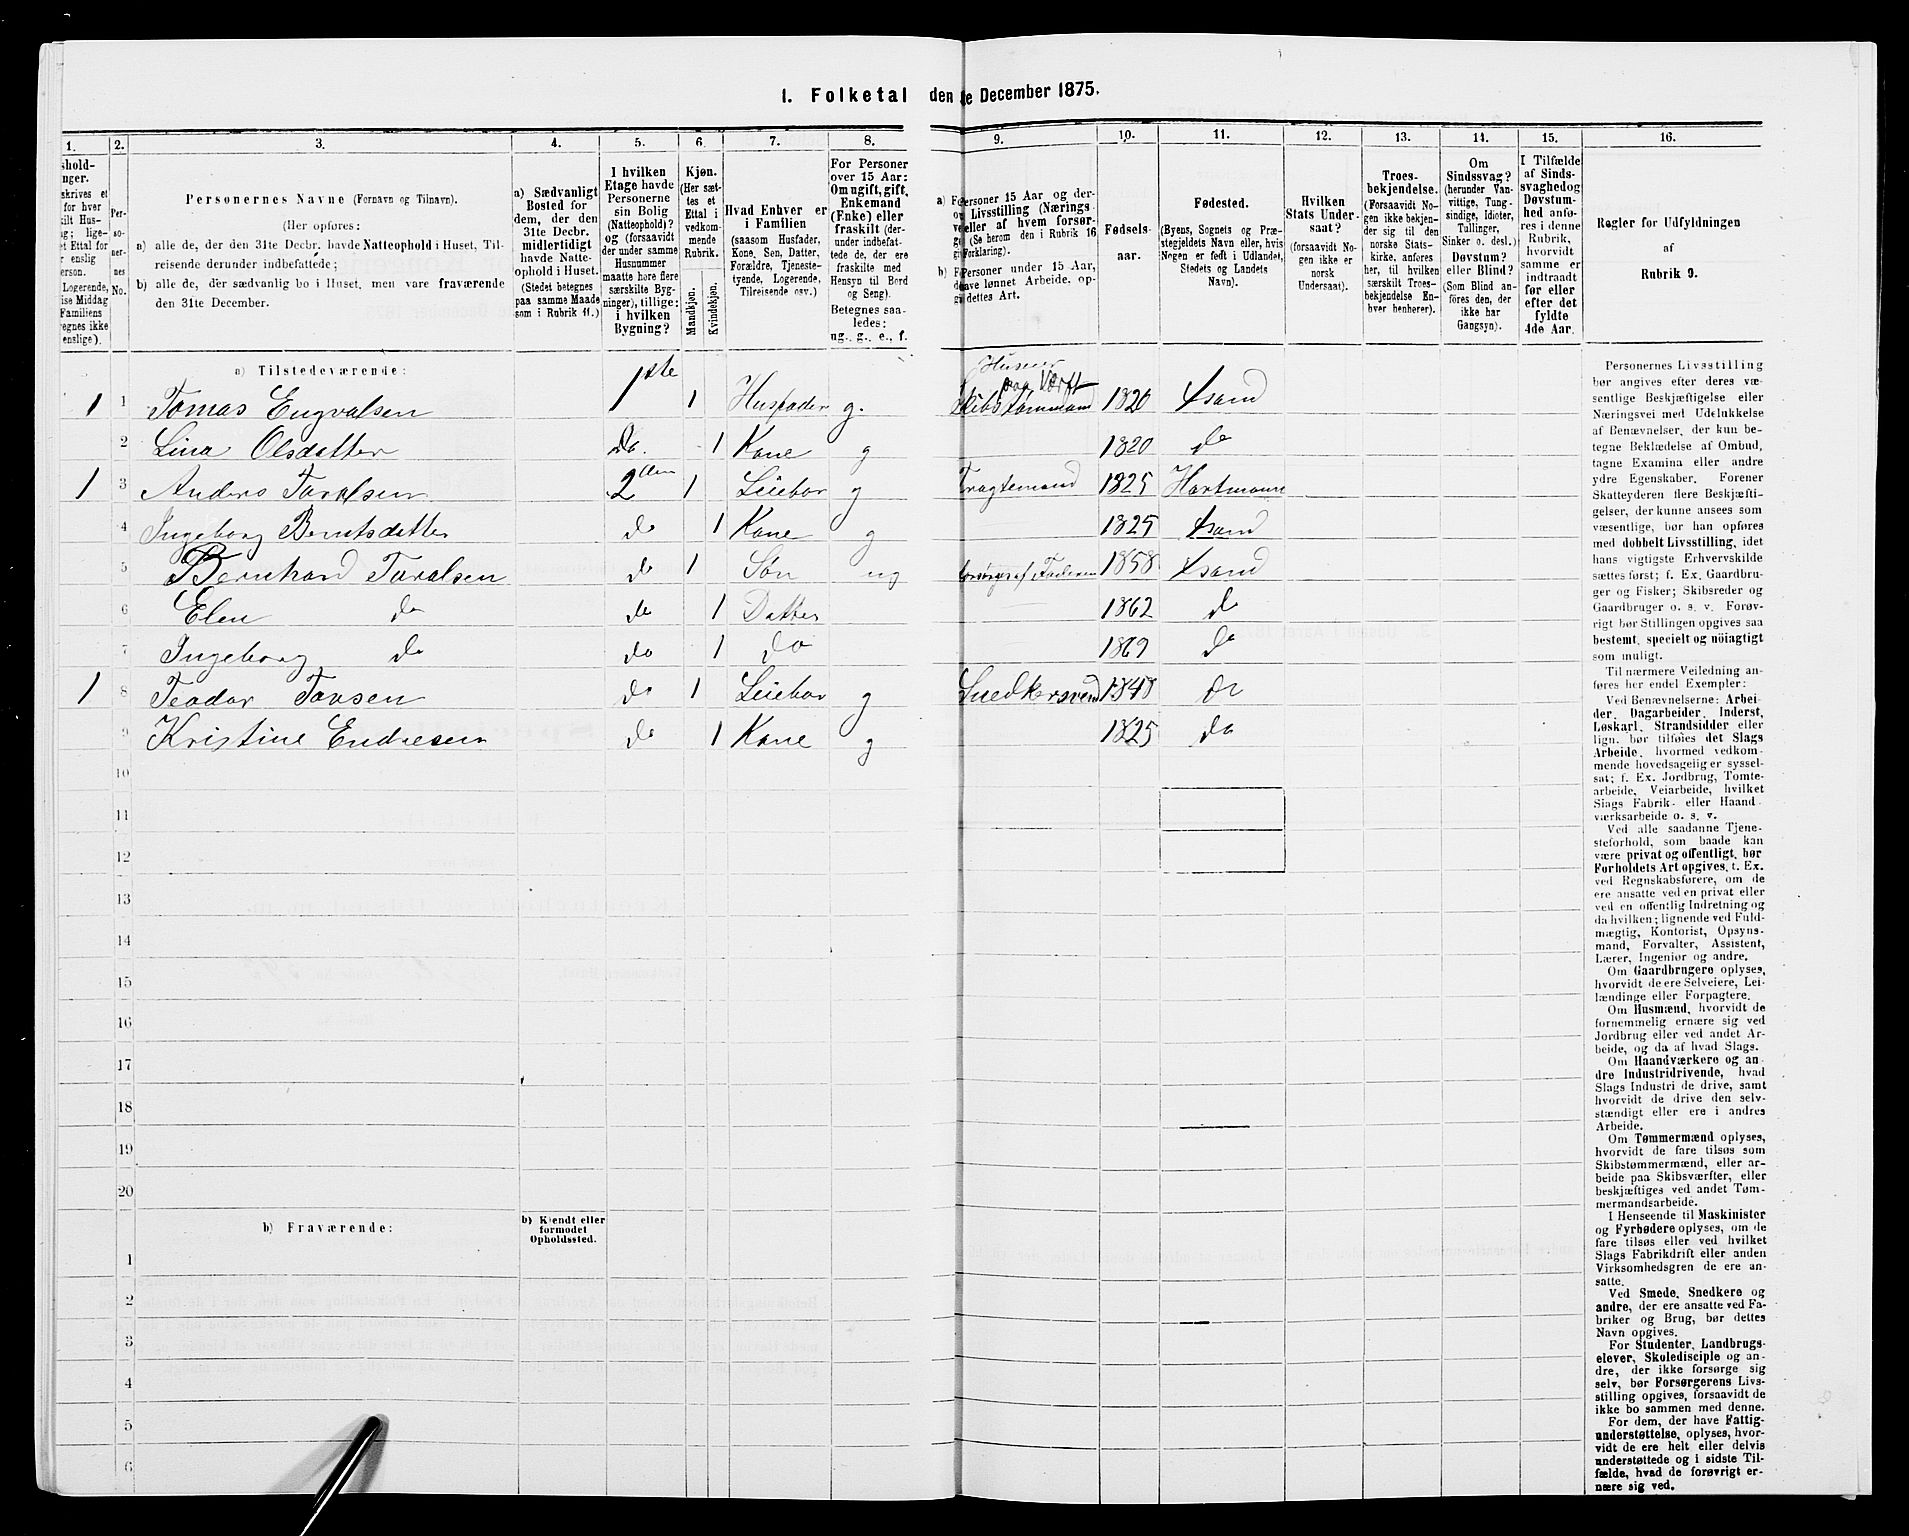 I. Folketal den 31te December 1875.
1. 2. 3. 4. 5. 6. 7. 8. 9. 10. 11. 12. 13. 14. 15. 16.
Personernes Navne (Fornavn og Tilnavn).
(Her opføres:
a) alle de, der den 31te Decbr. havde Natteophold i Huset, Tilreisende derunder indbefattede;
b) alle de, der sædvanlig bo i Huset, men vare fraværende den 31te December.
a) Sædvanligt Bosted for dem, der den 31te Decbr. midlertidigt havde Natteophold i Huset. (Stedet betegnes paa samme Maade som i Rubrik 11.)
I hvilken Etage havde Personerne sin Bolig (Natteophold)? og (forsaavidt der under samme Husnummer maatte høre flere særskilte Bygninger), tillige: i hvilken Bygning?
Kjøn. (Her sættes et Ettal i vedkommende Rubrik.
Mandkjøn. Kvindekjøn.
Hvad Enhver er i Familien (saasom Husfader, Kone, Søn, Datter, Forældre, Tjenestetyende, Logerende, Tilreisende osv.)
For Personer over 15 Aar: Om ugift, gift, Enkemand (Enke) eller fraskilt (derunder indbefattede de, der ere fraskilte med Hensyn til Bord og Seng). Betegnes saaledes: ug., g., e., f.
Fødselsaar.
Fødested. (Byens, Sognets og Præstegjeldets Navn eller, hvis Nogen er født i Udlandet, Stedets og Landets Navn).
Hvilken Stats Undersaat? (forsaavidt Nogen ikke er norsk Undersaat).
Troesbekjendelse. (Forsaavidt Nogen ikke bekjender sig til den norske Statskirke, anføres her, til hvilken særskilt Troesbekjendelse Enhver henhører).
Om Sindssvag? (herunder Vanvittige, Tungsindige, Idioter, Tullinger, Sinker o. desl.) Døvstum? eller Blind? (Som Blind anføres den, der ikke har Gangsyn).
I Tilfælde af Sindssvaghed og Døvstumhed anføres i denne Rubrik, hvorvidt samme er indtraadt før eller efter det fyldte 4de Aar.
Regler for Udfyldningen af Rubrik 9.
a) Tilstedeværende:
1 1 Tomas Engvalsen 1ste 1 Husfader g. Huseier 1820 Asand
2 Lina Olsdatter Do. 1 Kone g 1820 do
1 3 Anders Toralsen 2den 1 Leiebor g 1825 Hartmann
4 Ingeborg Berntsdatter do 1 Kone g 1825 Asand
5 Bernhard Toralsen do 1 Søn ug 1858 Asand
6 Elen do do 1 Datter 1862 do
7 Ingeborg do do 1 do 1869 do
1 8 Teodor Tovsen do 1 Leiebor g Snedkersvend 1848 do
9 Kristine Endresen do 1 Kone g 1825 do
10
11
12
13
14
15
16
17
18
19
20
b) Fraværende: b) Kjendt eller formodet Opholdssted.
1
2
3
4
5
6
Personernes Livsstilling bør angives efter deres væsentlige Beskjæftigelse eller Næringsvei med Udelukkelse af Benævnelser, der kun betegne Beklædelse af Ombud, tagne Examina eller andre ydre Egenskaber. Forener Skatteyderen flere Beskjæftigelser, der kunne ansees som væsentlige, bør han opføres med dobbelt Livsstilling, idet hans vigtigste Erhvervskilde sættes først; f. Ex. Gaardbruger og Fisker; Skibsreder og Gaardbruger o. s. v. Forøvrigt bør Stillingen opgives saa bestemt, specielt og nøiagtigt som muligt.
Til nærmere Veiledning anføres her endel Exempler:
Ved Benævnelserne: Arbeider, Dagarbeider, Inderst, Løskarl, Strandsidder eller lign. bør tilføies det Slags Arbeide, hvormed vedkommende hovedsagelig er sysselsat; f. Ex. Jordbrug, Tomtearbeide, Veiarbeide, hvilket Slags Fabrik- eller Haandværksarbeide o. s. v.
Ved alle saadanne Tjenesteforhold, som baade kan være privat og offentligt, bør Forholdets Art opgives, t. Ex. ved Regnskabsførere, om de ere ansatte ved en privat eller ved en offentlig Indretning og da hvilken; lignende ved Fuldmægtig, Kontorist, Opsynsmand, Forvalter, Assistent, Lærer, Ingeniør og andre.
Om Gaardbrugere oplyses, hvorvidt de ere Selveiere, Leilændinge eller Forpagtere.
Om Husmænd, hvorvidt de fornemmelig ernære sig ved Jordbrug eller ved andet Arbeide, og da af hvad Slags.
Om Haandværkere og andre Industridrivende, hvad Slags Industri de drive, samt hvorvidt de drive den selvstændigt eller ere i andres Arbeide.
Om Tømmermænd oplyses, hvorvidt de fare tilsøs som Skibstømmermænd, eller arbeide paa Skibsværfter, eller beskjæftiges ved andet Tømmermandsarbeide.
I Henseende til Maskinister og Fyrbødere oplyses, om de fare tilsøs eller ved hvilket Slags Fabrikdrift eller anden Virksomhedsgren de ere ansatte.
Ved Smede, Snedkere og andre, der ere ansatte ved Fabriker og Brug, bør dettes Navn opgives.
For Studenter, Landbrugselever, Skoledisciple og andre, der ikke forsørge sig selv, bør Forsørgerens Livsstilling opgives, forsaavidt de ikke bo sammen med denne.
For dem, der have Fattigunderstøttelse, oplyses, hvorvidt de ere helt eller delvis understøttede og i sidste Tilfælde, hvad de forøvrigt ernære sig ved.